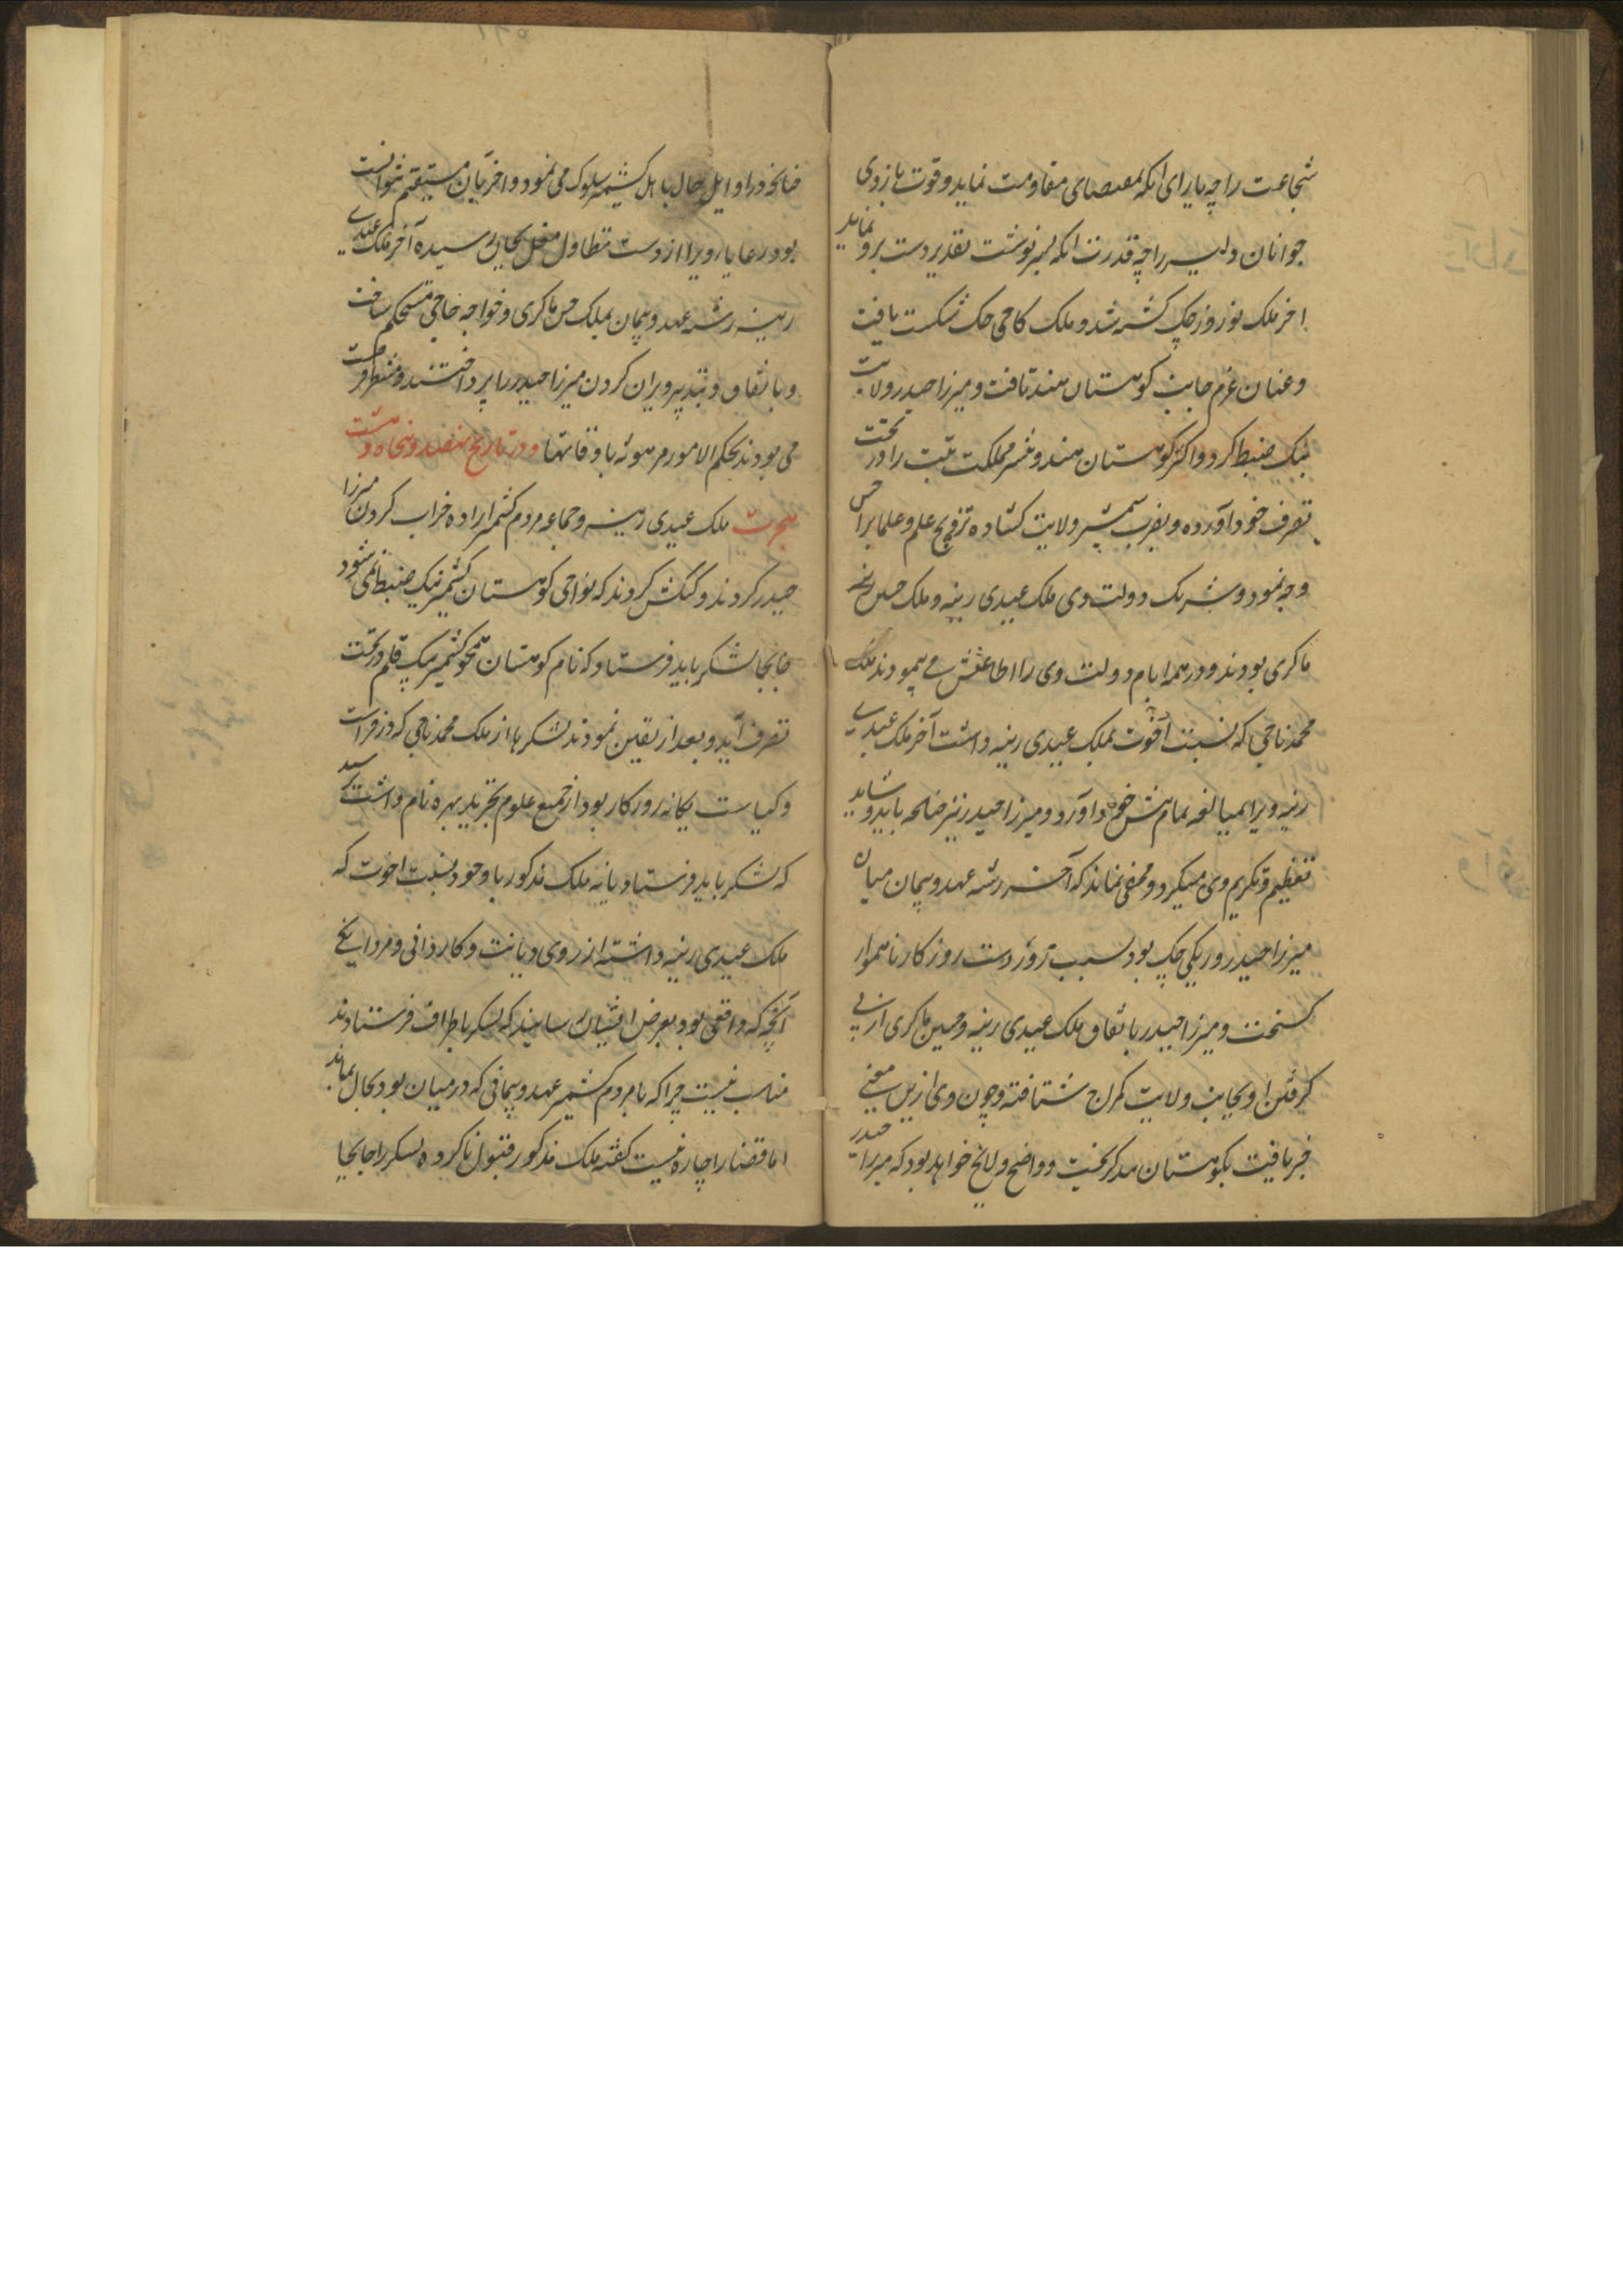 شجاعت را چه یارای انکه بمقتضای مقاومت نماید و قوت بازوی
جوانان دلیر را چه قدرت انکه بسرنوشت تقدیر دست برو نماید
اخر ملک نوروز چک کشته شد و ملک کاجی چک شکست یافت
و عنان عزم جانب کوهستان هند تافت و میرزا حیدر ولایت
نیک ضبط کرد و اکثر کوهستان هند و مملکت تبت را در تحت
تصرف خود داورده و بضرب شمشیر ولایت کشاده ترویج علم و علما براحسن
وجه نمود و شریک دولت وی ملک عیدی رینه و ملک حسن
ماکری بودند و در همه ایام دولت وی را اطاعتش می پیمودند ملک
محمد ناجی که نسبت اخوت بملک عیدی رینه داشت آخر ملک عیدی
رینه ویرا بمبالغه تمام پیش خود داورد و میرزا حیدر نیز چنانچه باید و شاید
تعظیم و تکریم وی میکرد و مخفی نماند که آخر رشته عهد و پیمان میان
میرزا حیدر و ریکی چک بود بسبب تزویر دست روزکار ناهموار
کسیخت و میرزا حیدر باتفاق ملک عیدی رینه و حسین ماکری از پی
کرفتن او بجانب ولایت کمراج شتافته و چون وی ازین معنی
خبر یافت بکوهستان هند کریخت و واضح و لایح خواهد بود که میرزا حیدر
چنانچه در اوایل حال با اهل کشمیر سلوک می نمود و اخر بآن مستقیم نتوانست
بود رعایا و برایا از دست تطاول مغل بجان رسیده آخر ملک عیدی
رینه رشته عهد و پیمان بملک حسن ماکری و خواجه حاجی مستحکم ساخت
و باتفاق و تدبیر ویران کردن میرزا حیدر را پرداختند و منتظر فرصت
می بودند بحکم الامور مرهونه باوقاتها و در تاریخ نهصد و پنجاه و هشت
هجرت ملک عیدی رینه و جماعه مردم کشمیر اراده خراب کردن میرزا
حیدر کردند و کنکش کردند که نواحی کوهستان کشمیر نیک ضبط نمی شود
جابجا لشکر باید فرستاد که تمام کوهستان همچو کشمیر یک قلم در تحت
تصرف آید و بعد از تعین نمودند لشکرها از ملک محمد ناجی که در فراست
و کیاست یکانه روزکار بود از جمیع علوم بهره تمام داشت پرسید
که لشکر باید فرستاد یا نه ملک مذکور با وجود نسبت اخوت که
ملک عیدی رینه داشته از روی دیانت و کاردانی و مردانکی
آنچه که واقعی بود بعرض ایشان رسانید که لشکر باطراف فرستادند
مناسب نیست چرا که با مردم کشمیر عهد و پیمانی که در میان بود بحال نماند
اما قضا را چاره نیست کفته ملک مذکور قبول ناکرده لشکر را جابجا